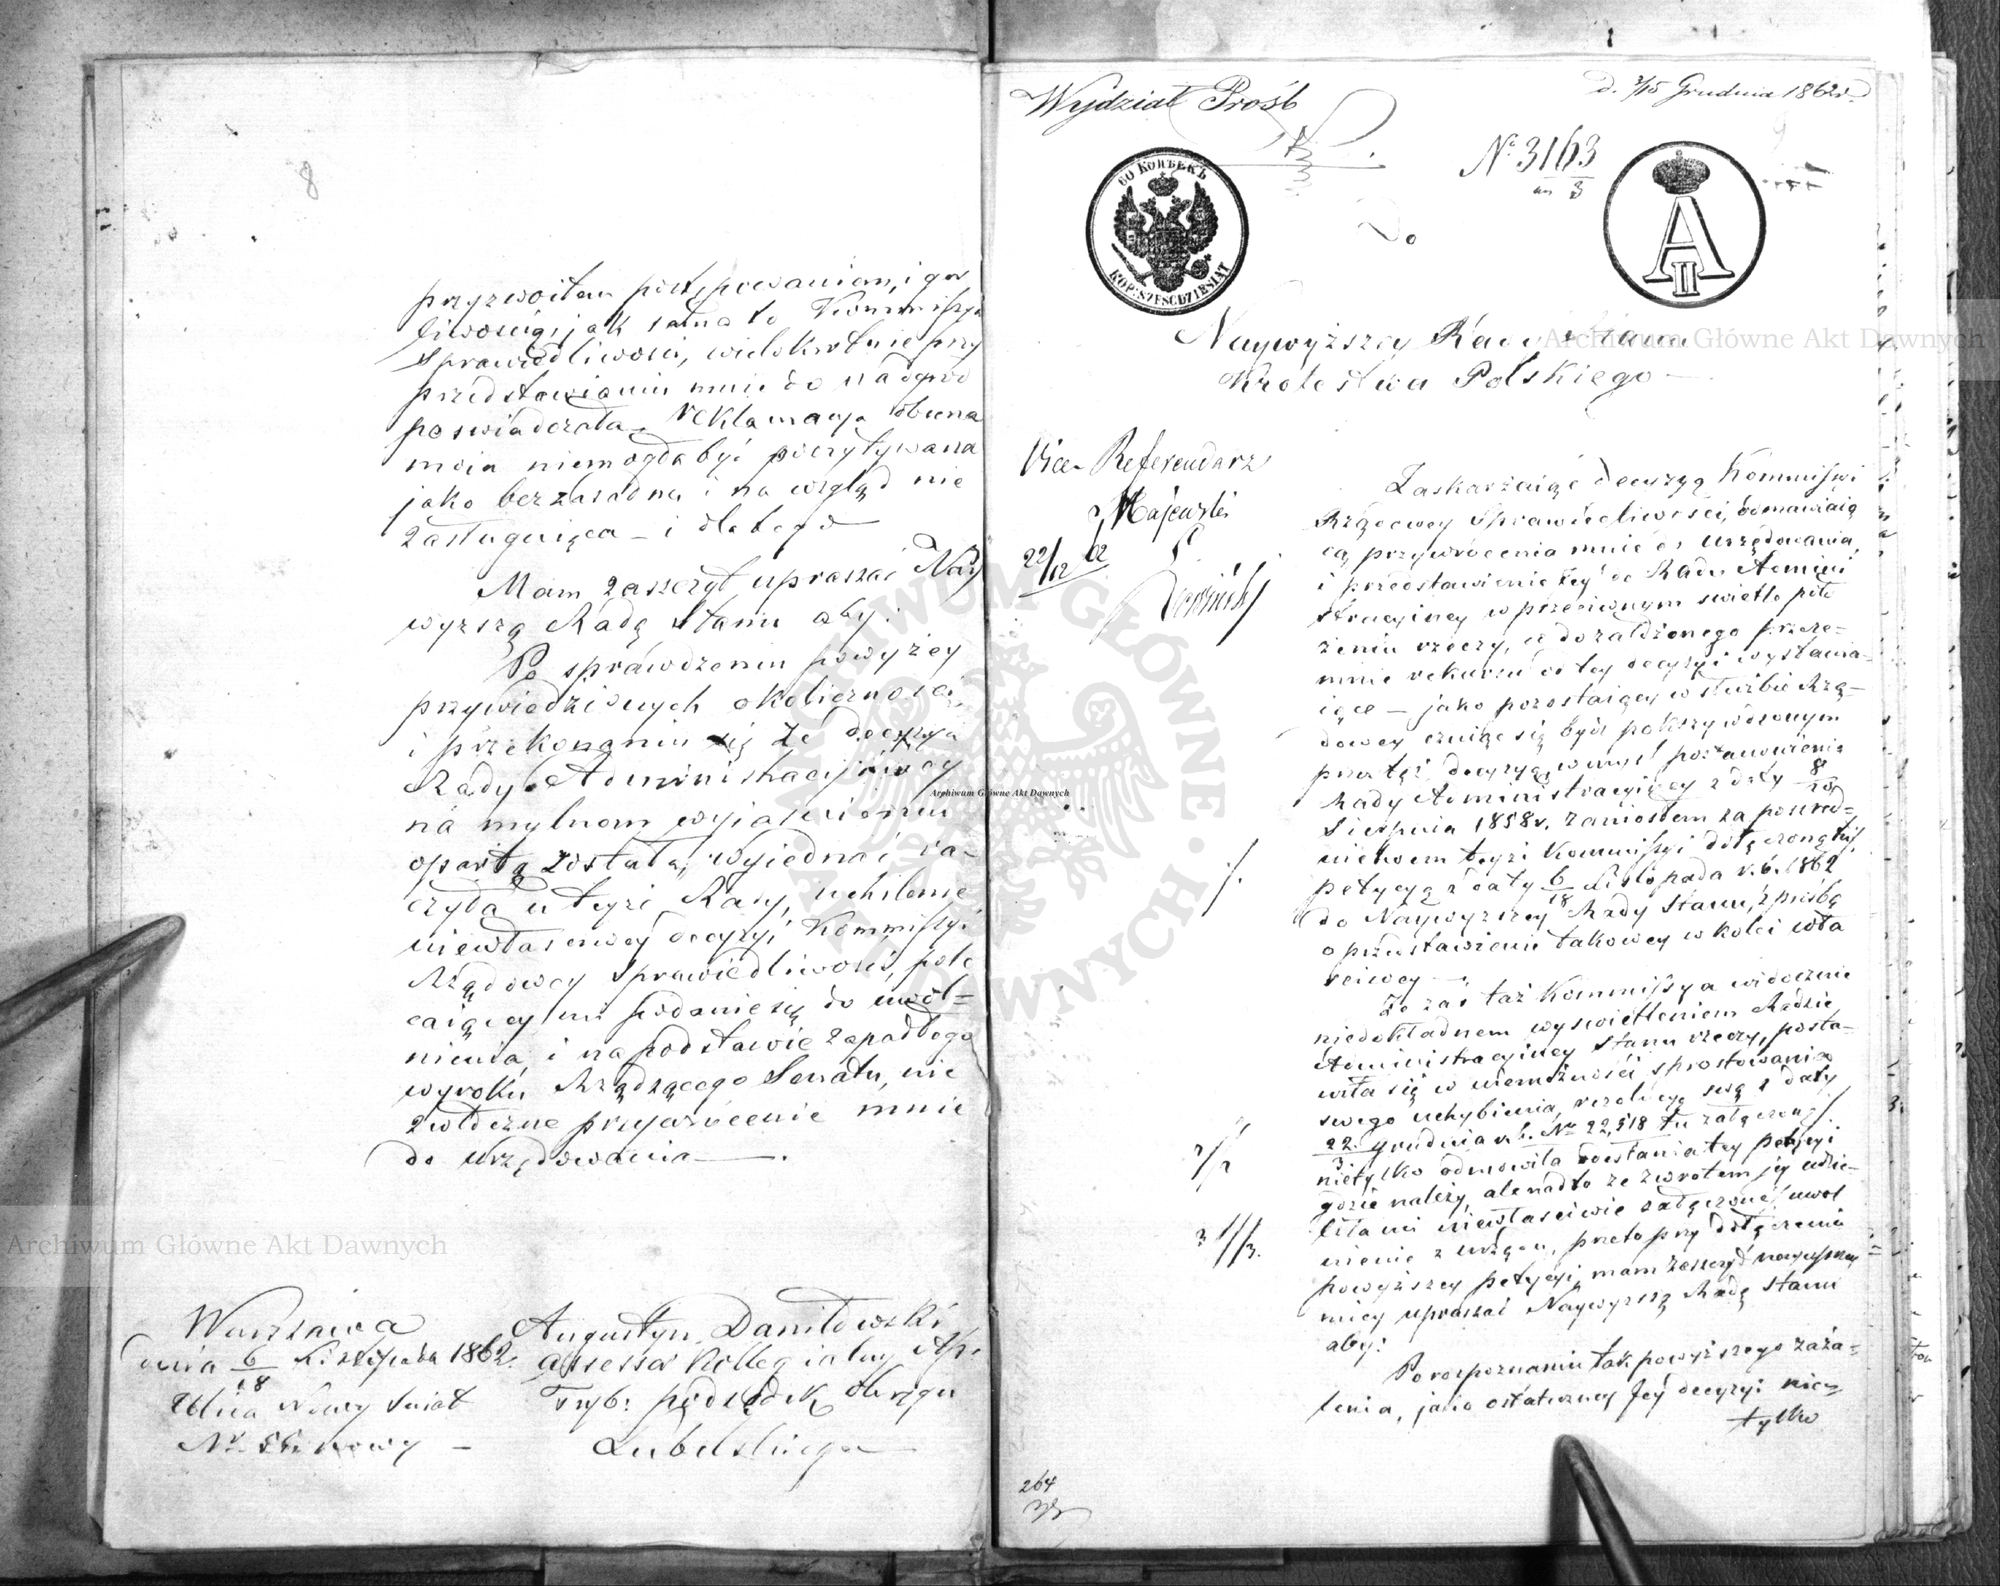 8
przyzwoitem postępowaniem, i gor
liwością jak sama to Kommissya
Sprawiedliwości, wielokrotnie przy
przedstawianiu mnie do nadgród
poswiadczała. reklamacya obecna
moia niemogła być poczytywana
jako bezzasadna i na wzgląd nie
zasługuiąca — i dla tego
Mam zaszczyt upraszać Nay
wyzszą Radę Stanu aby:
Po sprawdzeniu powyżey
przywiedzionych okoliczności,
i przekonaniu się że decyzya
Rady Administracyiney
na mylnem wyjasnieniu
opartą została, wyjednać ra-
czyła u teyże Rady, uchilenie
niewłasciwey decyzyi Kommissyi
Rządowey Sprawiedliwości, pole
caiącey mi podanie się do uwol=
nienia, i na podstawie zapadłego
wyroku Rządzącego Senatu, nie
zwłoczne przywrócenie mnie
do urzędowania —.
Warszawa
dnia 6/18 Listopada 1862
Ulica Nowy Swiat
Nr nowy —
Augustyn Daniłowski
assessor Kollegialny
Tryb: podsędek Okręgu
Lubelskiego
Wydział Próśb
D. 3/15 Grudnia 1862 r.
Nº 3163
3
60 КОПѢЕКЪ
KOP: SZESCDZIESIĄT
A II
Do
Naywyższey Rady Stanu
Królestwa Polskiego —
Vice-Referendarz
Majewski
22/12 62
Zaskarżaiąc decyzyą Kommissyi
Rządowey Sprawiedliwości, odmawiaią
cą przywrócenia mnie do urzędowania
i przedstawienie tey do Rady Admini
stracyiney w przeciwnym swietle poło
żeniu rzeczy, do założonego przeze=
mnie rekursu od tey decyzyi wystawia=
iące — jako pozostaiący w służbie Rzą—
dowey czuiąc się być pokrzywdzonym
przez też decyzyą, w mysl postanowienia
Rady Administracyiney z daty 8/20
Sierpnia 1858 r. zaniosłem za posred=
nictwem teyże Kommissyi dołączoną tu
petycyą z daty 6/18 Listopada r. b. 1862
do Naywyższey Rady Stanu, z prosbą
o przedstawienie takowey w kolei wła
sciwey —
Że zaś taż Kommissya widocznie
niedokładnem wyswietleniem Radzie
Administracyiney Stanu rzeczy, posta—
wiła się w niemożności sprostowania
swego uchybienia, rezolucyą swą z daty
22/3 Grudnia r. b. Nº 22,518 tu załączoną
nietylko odmowiła odesłania tey petycyi
gdzie należy, ale nadto ze zwrotem jey udzie-
liła mi niewłasciwie załączone uwol
nienie z urzędu, przeto przy dołączeniu
powyższey petycyi, mam zaszczyt nayuniże
niey upraszać Naywyższą Radę Stanu
aby:
Po rozpoznaniu tak powyższego zaża=
lenia, jako ostateczney Jey decyzyi nie=
tylko
264
Archiwum Główne Akt Dawnych
Archiwum Główne Akt Dawnych
Archiwum Główne Akt Dawnych
ARCHIWUM GŁÓWNE AKT DAWNYCH